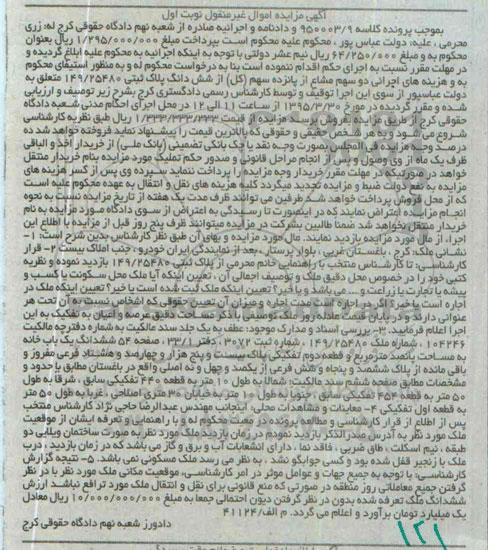 آگهی مزایده اموال غیرمنقول نوبت اول
بموجب پرونده کلاسه ۹۵۰۰۰۳/۹ و دادنامه و اجرائیه صادره از شعبه نهم دادگاه حقوقی کرج له: زری
محرمی، علیه: دولت عباس پور، محکوم علیه محکوم است بپرداخت مبلغ ۱/۲۹۵/۰۰۰/۰۰۰ ریال بعنوان
محکوم به و مبلغ ۶۴/۲۵۰/۰۰۰ ریال نیم عشر دولتی با توجه به اینکه اجرائیه به محکوم علیه ابلاغ گردیده و
در مهلت مقرر نسبت به اجرای حکم اقدام ننموده است بنا به درخواست محکوم له و به منظور استیفای محکوم
به و هزینه های اجرائی دو سهم مشاع از پانزده سهم (کل) از شش دانگ پلاک ثبتی ۱۴۹/۲۵۴۸۰ متعلق به
دولت عباسپور از سوی این اجرا توقیف و توسط کارشناس رسمی دادگستری کرج بشرح زیر توصیف و ارزیابی
شده و مقرر گردیده در مورخ ۱۳۹۵/۳/۳۰ از ساعت ۱۱ الی ۱۲ در محل اجرای احکام مدنی شعبه دادگاه
حقوقی کرج از طریق مزایده بفروش برسد مزایده از قیمت ۱/۳۳۳/۳۳۳/۳۳۳ ریال طبق نظریه کارشناسی
شروع می شود و به هر شخص حقیقی و حقوقی که بالاترین قیمت را پیشنهاد نماید فروخته خواهد شد ده
درصد وجه مزایده فی المجلس بصورت وجه نقد یا چک بانکی تضمینی (بانک ملی) از خریدار اخذ و الباقی
ظرف یک ماه از وی وصول و پس از انجام مراحل قانونی و صدور حکم تملیک مورد مزایده بنام خریدار منتقل
خواهد در صورتیکه در مهلت مقرر خریدار وجه مزایده را پرداخت ننماید سپرده وی پس از کسر هزینه های
مزایده به نفع دولت ضبط و مزایده تجدید میگردد کلیه هزینه های نقل و انتقال به عهده محکوم علیه است
که از محل فروش پرداخت خواهد شد طرفین می توانند ظرف مدت یک هفته از تاریخ مزایده نسبت به نحوه
انجام مزایده اعتراض نمایند که در اینصورت تا رسیدگی به اعتراض از سوی دادگاه مورد مزایده به نام
خریدار منتقل نخواهد شد ضمنا طالبین بشرکت در مزایده میتوانند ظرف پنج روز قبل از مزایده با اطلاع این
اجرا، از مال مورد مزایده بازدید نمایند. مال مورد مزایده و بهای آن طبق نظر کارشناس بدین شرح است: ۱-
نشانی ملک: کرج، باغستان غربی، بلوار پرستار، بعد از نمایندگی ایران خودرو، جنب املاک بیست ۲- قرار
کارشناسی: تا کارشناس منتخب با راهنمایی خانم محرمی از پلاک ثبتی ۱۴۹/۲۵۴۸۰ بازدید نموده و نظریه
کتبی خود را در خصوص محل دقیق ملک و توصیف اجمالی آن، تعیین اینکه آیا ملک محل سکونت یا کسب و
پیشه یا تجارت یا زراعت و... می باشد و یا خیر؟ تعیین اینکه ملک ثبت شده است یا خیر؟ تعیین اینکه ملک در
اجاره است یا خیر؟ اگر در اجاره است مدت اجاره و میزان آن تعیین حقوقی که اشخاص نسبت به آن تحت هر
عنوانی دارند و در پایان قیمت عادله روز ملک توصیفی با ذکر مساحت دقیق عرصه و اعیان به تفکیک به این
اجرا اعلام فرمایید. ۳- بررسی اسناد و مدارک موجود: عطف به یک جلد سند مالکیت به شماره دفترچه مالکیت
۱۰۴۲۴۶، شماره ملک ۱۴۹/۲۵۴۸۰، شماره ثبت ۳۰۷۲، دفتر ۳۳/۱، صفحه ۵۴ ششدانگ یک باب خانه
به مساحت پانصد مترمربع و قطعه دوم تفکیکی پلاک بیست و پنج هزار و چهارصد و هشتاد فرعی مفروز و
باقی مانده از پلاک ششصد و پنجاه و شش فرعی از یکصد و چهل و نه اصلی واقع در باغستان مطابق با حدود و
مشخصات مطابق صفحه ششم سند مالکیت: شمالا به طول ۱۰ متر به قطعه ۴۴۰ تفکیکی سابق، شرقا به طول
۵۰ متر به قطعه ۴۵۴ تفکیکی سابق، جنوبا به طول ۱۰ متر به خیابان ۳۰ متری اصلاحی، غربا به طول ۵۰ متر
به قطعه اول تفکیکی ۴- معاینات و مشاهدات محلی: اینجانب مهندس عبدالرضا حاجی نژاد کارشناس منتخب
پس از اطلاع از قرار کارشناسی و مطالعه پرونده در معیت محکوم له و با راهنمایی و تعرفه ایشان از موقعیت
ملک مورد نظر به آدرس صدرالذکر بازدید نمودم در زمان بازدید ملک مورد نظر به صورت ساختمان ویلایی دو
طبقه، نیم اسکلت، طاق ضربی، فاقد نما، دارای انشعابات آب و برق و گاز می باشد که در زمان بازدید، درب
ملک با زنجیر قفل شده بود و کسی جوابگو نشد. به نظر می رسد ملک مسکونی نمی باشد. ۵- نتیجه گزارش
کارشناسی: با توجه به جمیع جهات و عوامل موثر در امر کارشناسی، موقعیت مکانی ملک مورد نظر با در نظر
گرفتن جمیع معاملاتی روز منطقه در صورتی که منع قانونی برای نقل و انتقال ملک مورد ترافع نباشد ارزش
ششدانگ ملک تعرفه شده بدون در نظر گرفتن دیون احتمالی جمعا به مبلغ ۱۰/۰۰۰/۰۰۰/۰۰۰ ریال معادل
یک میلیارد تومان برآورد و اعلام می گردد. م الف/۴۱۱۲۴
دادورز شعبه نهم دادگاه حقوقی کرج
۱۲۱